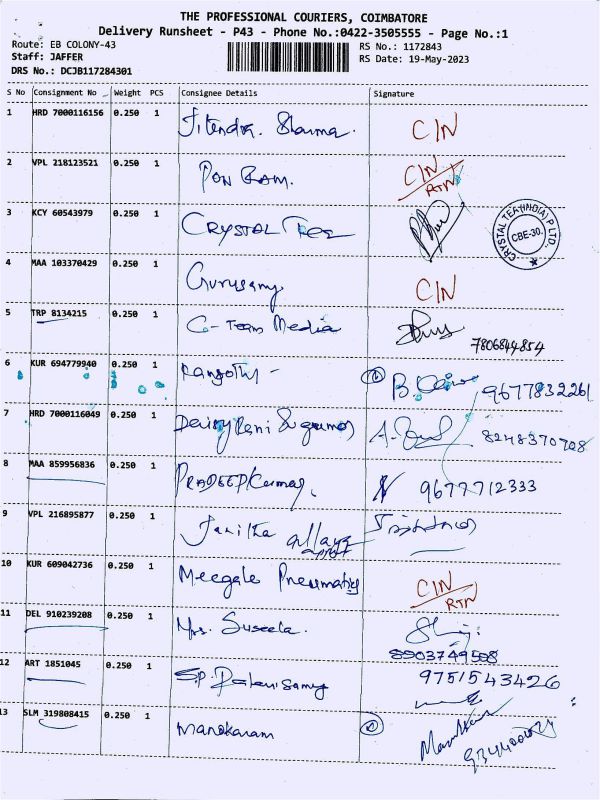 THE PROFESSIONAL COURIERS, COIMBATORE
Delivery Runsheet - P43 - Phone No.:0422-3505555 - Page No.:1
Route: EB COLONY-43
Staff: JAFFER
DRS No.: DCJB117284301
RS No.: 1172843
RS Date: 19-May-2023
S No Consignment No Weight PCS Consignee Details Signature
1 HRD 7000116156 0.250 1 Jitendra. Sharma. C/N
2 VPL 218123521 0.250 1 PON RAM. C/N RTN
3 KCY 60543979 0.250 1 CRYSTAL Tree CRYSTAL TEA (INDIA) P LTD. CBE-30.
4 MAA 103370429 0.250 1 Gurusamy C/N
5 TRP 8134215 0.250 1 G-Team Media 7806844854
6 KUR 694779940 0.250 1 9677832261
7 HRD 7000116049 0.250 1 8248370708
8 MAA 859956836 0.250 1 PRADEEPKumar, 9677712333
9 VPL 216895877 0.250 1
10 KUR 609042736 0.250 1 Meegale Pneumatics C/N RTN
11 DEL 910239208 0.250 1 Mrs. Suseela. 8903749508
12 ART 1851045 0.250 1 S.P. Palanisamy 9751543426
13 SLM 319808415 0.250 1 Manokaram